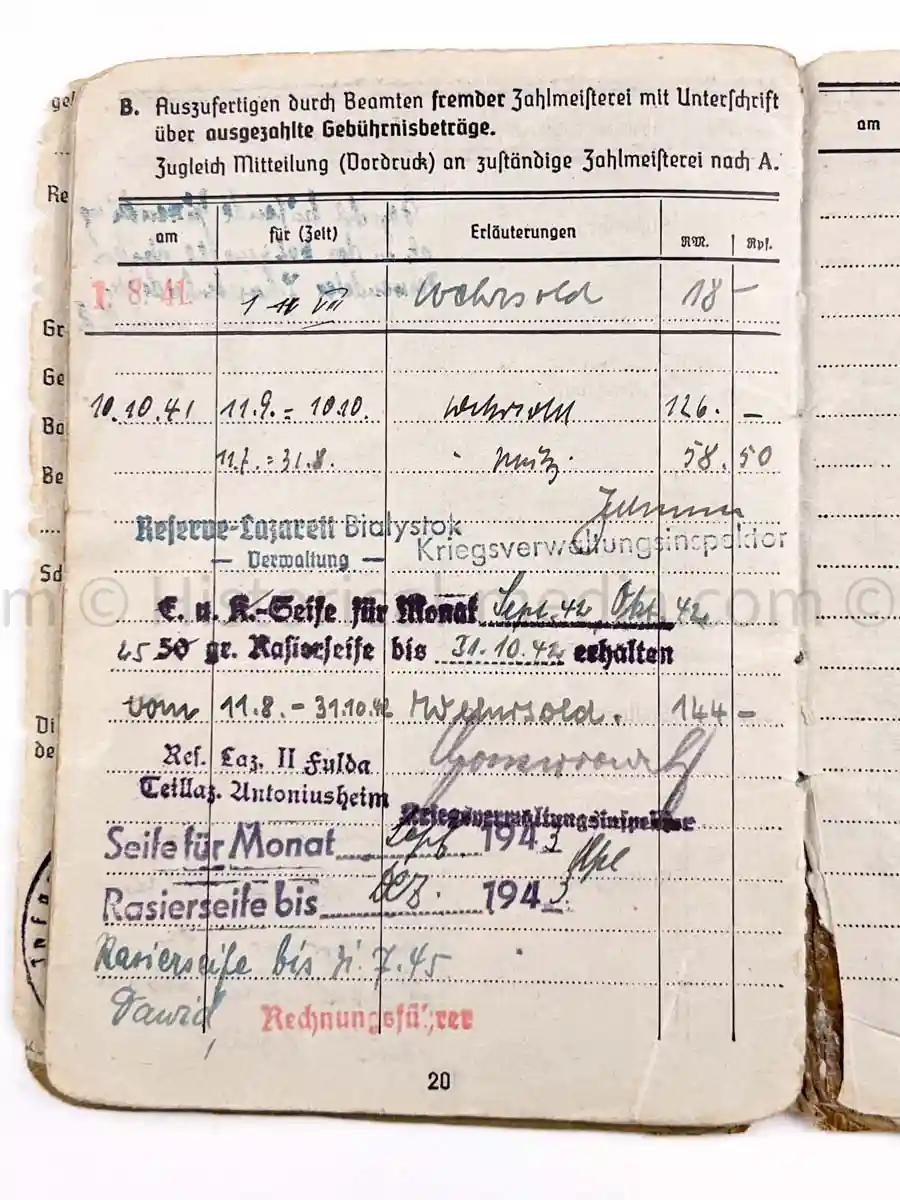 B. Auszufertigen durch Beamten fremder Zahlmeisterei mit Unterschrift
über ausgezahlte Gebührnisbeträge.
Zugleich Mitteilung (Vordruck) an zuständige Zahlmeisterei nach A.
am für (Zeit) Erläuterungen RM. Rpf.
1. 8. 41 Wehrsold 18 –
10.10.41 11.9. – 10.10. Wehrsold 126. –
11.7. – 31.8. 58. 50
Reserve-Lazarett Bialystok
— Verwaltung —
Kriegsverwaltungsinspektor
E. u. K.-Seife für Monat Sept. 42 Okt. 42
45 50 gr. Rasierseife bis 31.10.42 erhalten
vom 11.8. – 31.10.42 Wehrsold. 144 –
Res. Laz. II Fulda
Teillaz. Antoniusheim
Kriegsverwaltungsinspektor
Seife für Monat Sept. 1943
Rasierseife bis Dez. 1943.
Rasierseife bis 31.7.45
Dawid Rechnungsführer
20
am
ge
Re
Gr
Ge
Ba
Be
Sd
Di
de
Info
m © Historicalmedia.com ©